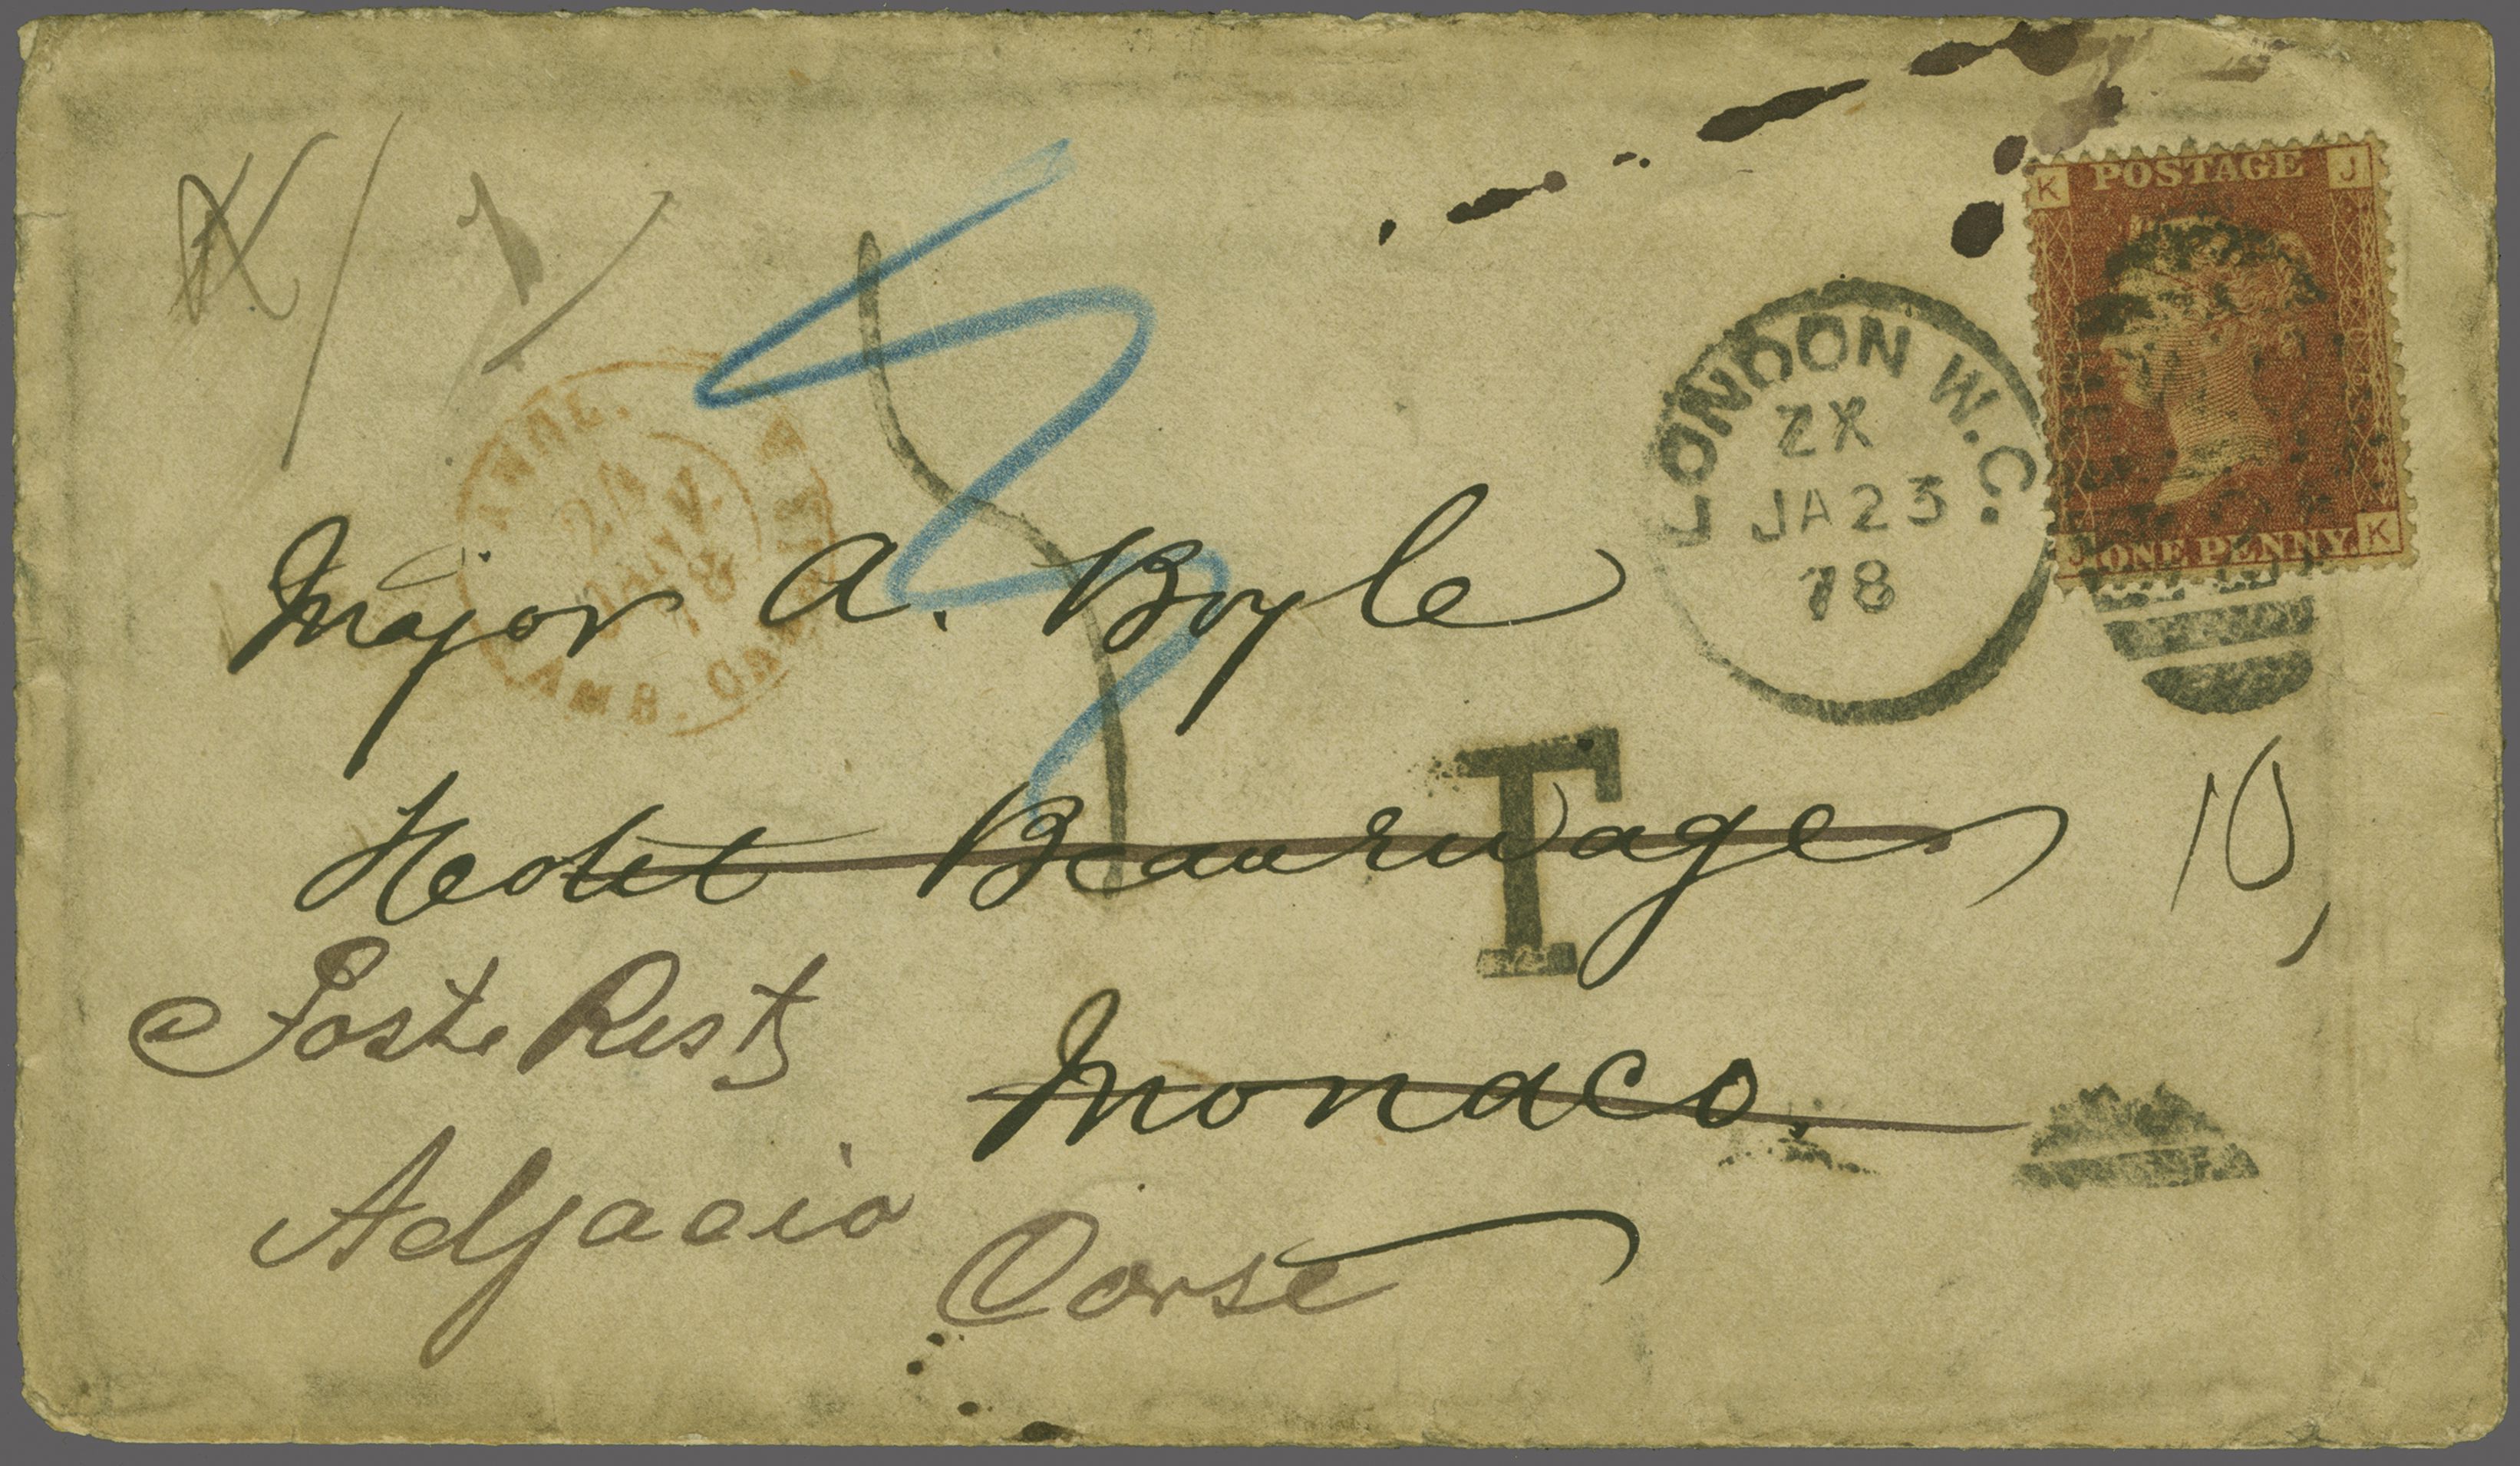 K POSTAGE J
J ONE PENNY K
LONDON W.C.
ZX
JA 23
78
JANV.
78
T
10
Major A. Boyle
Hotel Beaurivage
Monaco.
Poste Reste
Adjaccio
Corse